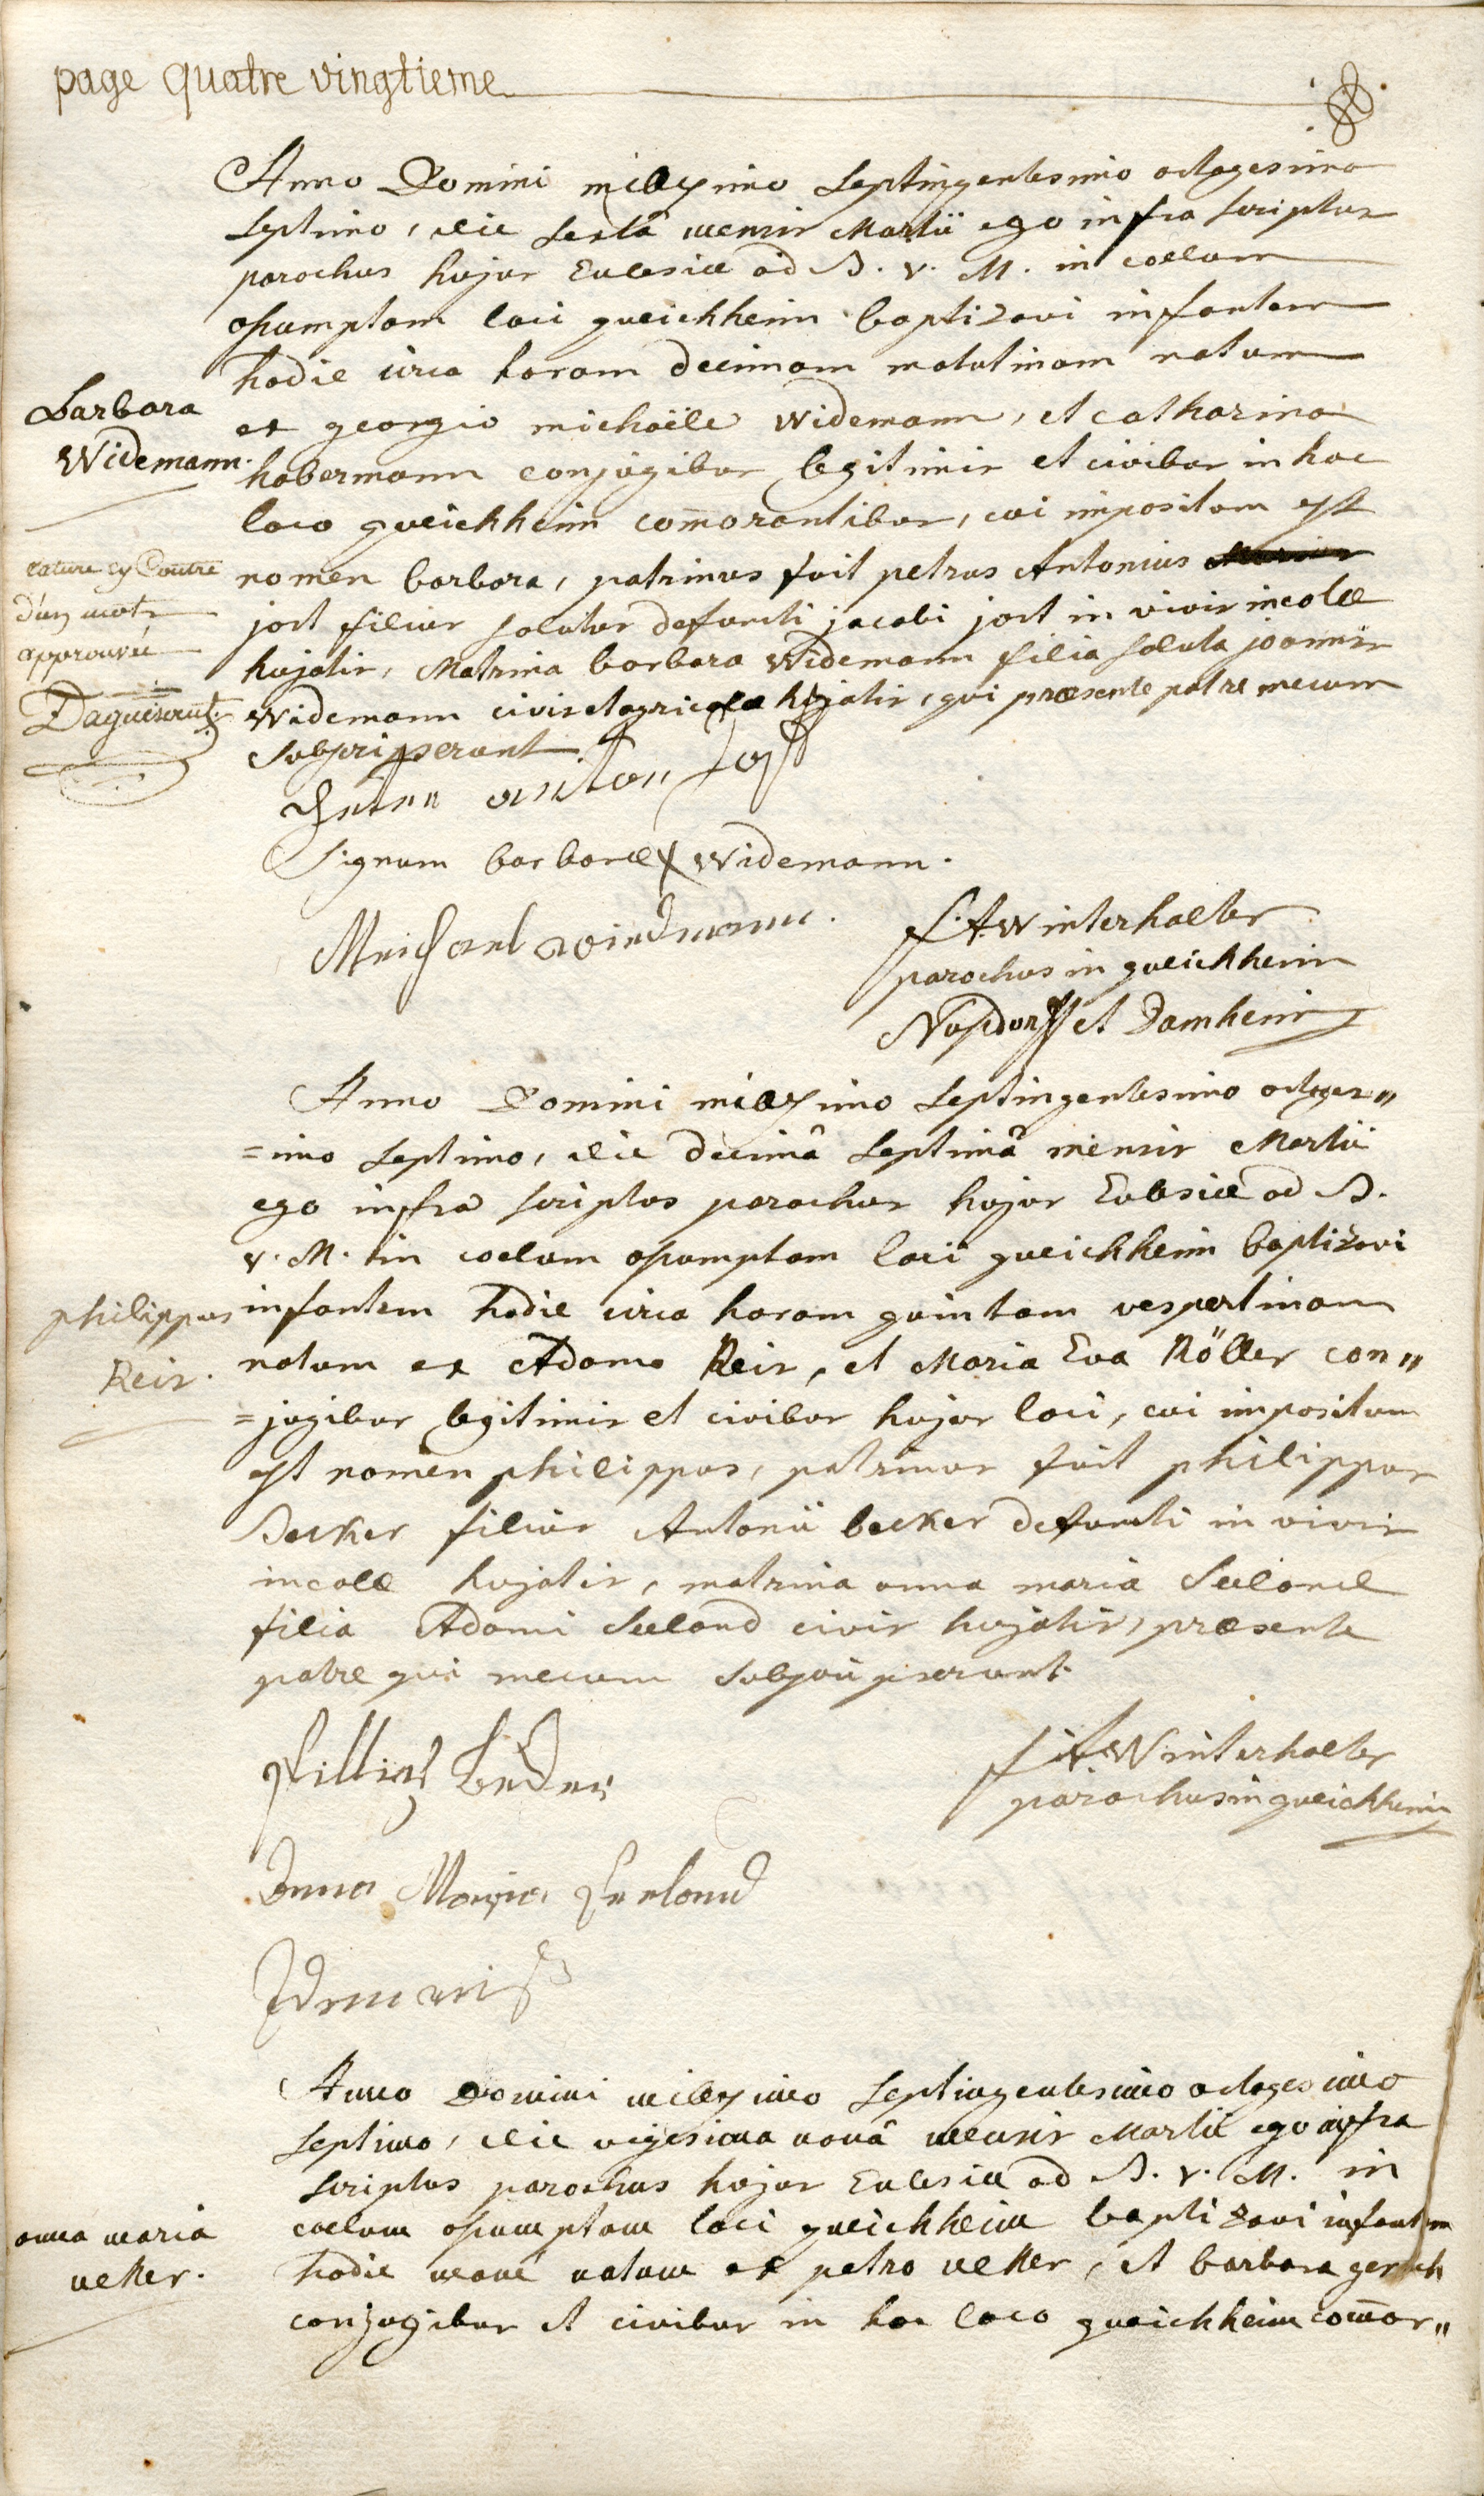 page quatre vingtieme
Anno Domini millesimo Septingentesimo octogesimo
Septimo, die Sextâ mensis Martii ego infra scriptus
parochus hujus Ecclesiæ ad B. V. M. in coelum
assumptam loci queichheim baptizavi infantem
hodie circa horam decimam matutinam natum
Barbara
Widemann.
ex georgio michaële Widemann, et catharina
habermann conjugibus legitimis et civibus in hoc
loco queichheim com̄orantibus, cui impositum est
rature cy Contre
d'un mot
approuvée
Daguiserut.
nomen barbara, patrinus fuit petrus Antonius
jost filius solutus defuncti jacobi jost in vivis incolæ
hujatis, Matrina barbara Widemann filia soluta joannis
Widemann civis et agricolæ hujatis, qui præsente patre mecum
subscripserunt.
Peter anton Jost
Signum barbaræ X Widemann.
Meichael wiedmann.
f. A. Winterhalter
parochus in queichheim
Nusdorff et Damheim
Anno Domini millesimo Septingentesimo octoges„
=imo Septimo, die decimâ Septimâ mensis Martii
ego infra scriptus parochus hujus Ecclesiæ ad B.
V. M. in coelum assumptam loci queichheim baptizavi
philippus
Reis.
infantem hodie circa horam quintam vespertinam
natum ex Adamo Reis, et Maria Eva Köller con„
=jugibus legitimis et civibus hujus loci, cui impositum
est nomen philippus, patrinus fuit philippus
Becker filius Antonii becker defuncti in vivis
incolæ hujatis, matrina anna maria Seeland
filia Adami Seeland civis hujatis, præsente
patre qui mecum subscripserunt.
Pillieb Becker
f. A. Winterhalter
parochus in queichheim
Anna Maria Seeland
Adam reiß
Anno Domini millesimo Septingentesimo octogesimo
Septimo, die vigesima nonâ mensis Martii ego infra
scriptus parochus hujus Ecclesiæ ad B. V. M. in
anna maria
ueker.
coelum assumptam loci queichheim baptizavi infantem
hodie mane natum ex petro ueker, et barbara
conjugibus et civibus in hoc loco queichheim com̄or„